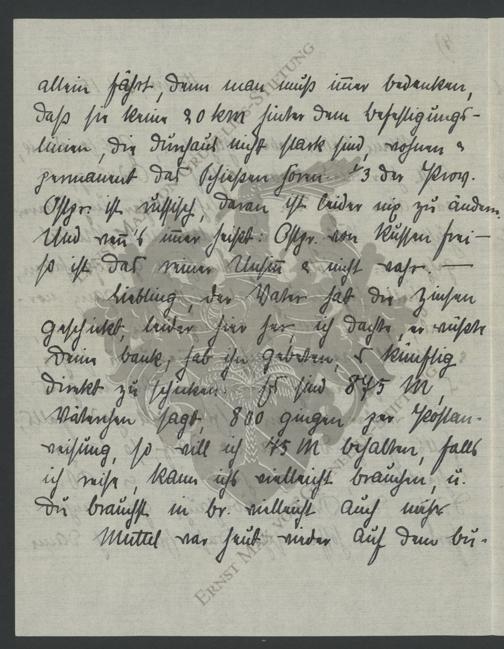 allein fährt, denn man muß im̅er bedenken,
daß sie keine 20 km hinter dem Befestigungs-
linien, die durchaus nicht stark sind, wohnen &
permanent das Schießen hören. 1/3 der Prov.
Ostpr. ist russisch, daran ist leider nix zu ändern.
Und wen̅'s im̅er heißt: Ostpr. von Russen frei –
so ist das reiner Unsin̅ & nicht wahr. —
Liebling, der Vater hat die Zinsen
geschickt, leider hier her, ich dachte, er wüßte
Deine bank, hab ihn gebeten es künftig
direkt zu schicken. Es sind 875 M,
Väterchen sagt, 800 gingen per Postan-
weisung, so will ich 75 M behalten, falls
ich reise, kann ichs vielleicht brauchen, u.
Du brauchst in br. vielleicht auch mehr
Muttel war heut wieder auf dem bü-
ERNST MAX VON
-STIFTUNG